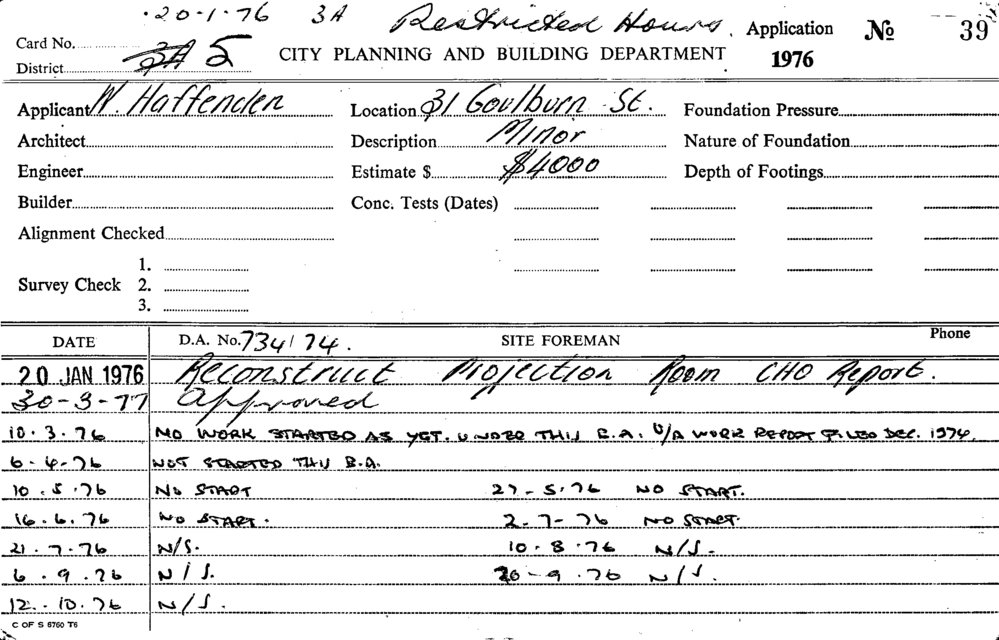 20-1-76 3A Restricted Hours. Application No 39
Card No.
District 3A 5 CITY PLANNING AND BUILDING DEPARTMENT 1976
Applicant W. Haffenden Location 31 Goulburn St. Foundation Pressure
Architect Description Minor Nature of Foundation
Engineer Estimate $ $4000 Depth of Footings
Builder Conc. Tests (Dates)
Alignment Checked
1.
Survey Check 2.
3.
DATE D.A. No. 734/74. SITE FOREMAN Phone
20 JAN 1976 Reconstruct Projection Room CHO Report.
30-3-77 Approved
10.3.76 NO WORK STARTED AS YET. UNDER THIS B.A. U/A WORK REPORT FILED DEC. 1974.
6-4-76 NOT STARTED THIS B.A.
10.5.76 NO START 27-5-76 NO START.
16.6.76 NO START. 2-7-76 NO START.
21.7.76 N/S. 10.8.76 N/S.
6.9.76 N/S. 20-9.76 N/S.
12.10.76 N/S.
C OF S 6760 T6